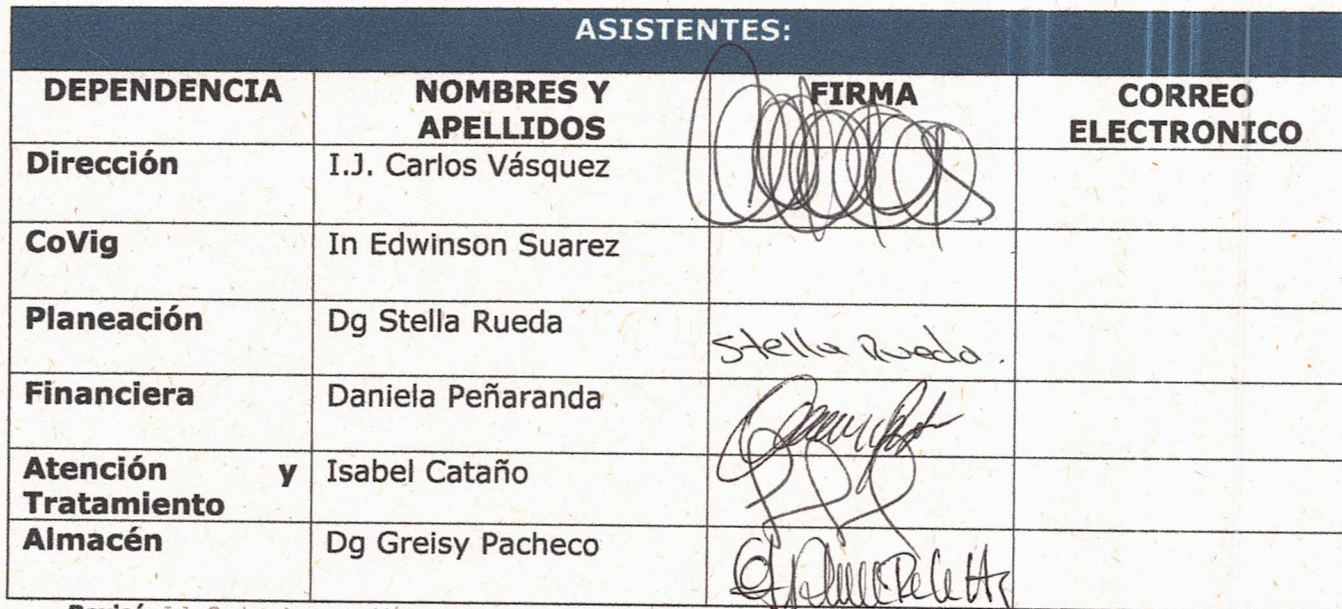 ASISTENTES:
DEPENDENCIA NOMBRES Y APELLIDOS FIRMA CORREO ELECTRONICO
Dirección I.J. Carlos Vásquez
CoVig In Edwinson Suarez
Planeación Dg Stella Rueda Stella Rueda.
Financiera Daniela Peñaranda
Atención y Tratamiento Isabel Cataño
Almacén Dg Greisy Pacheco